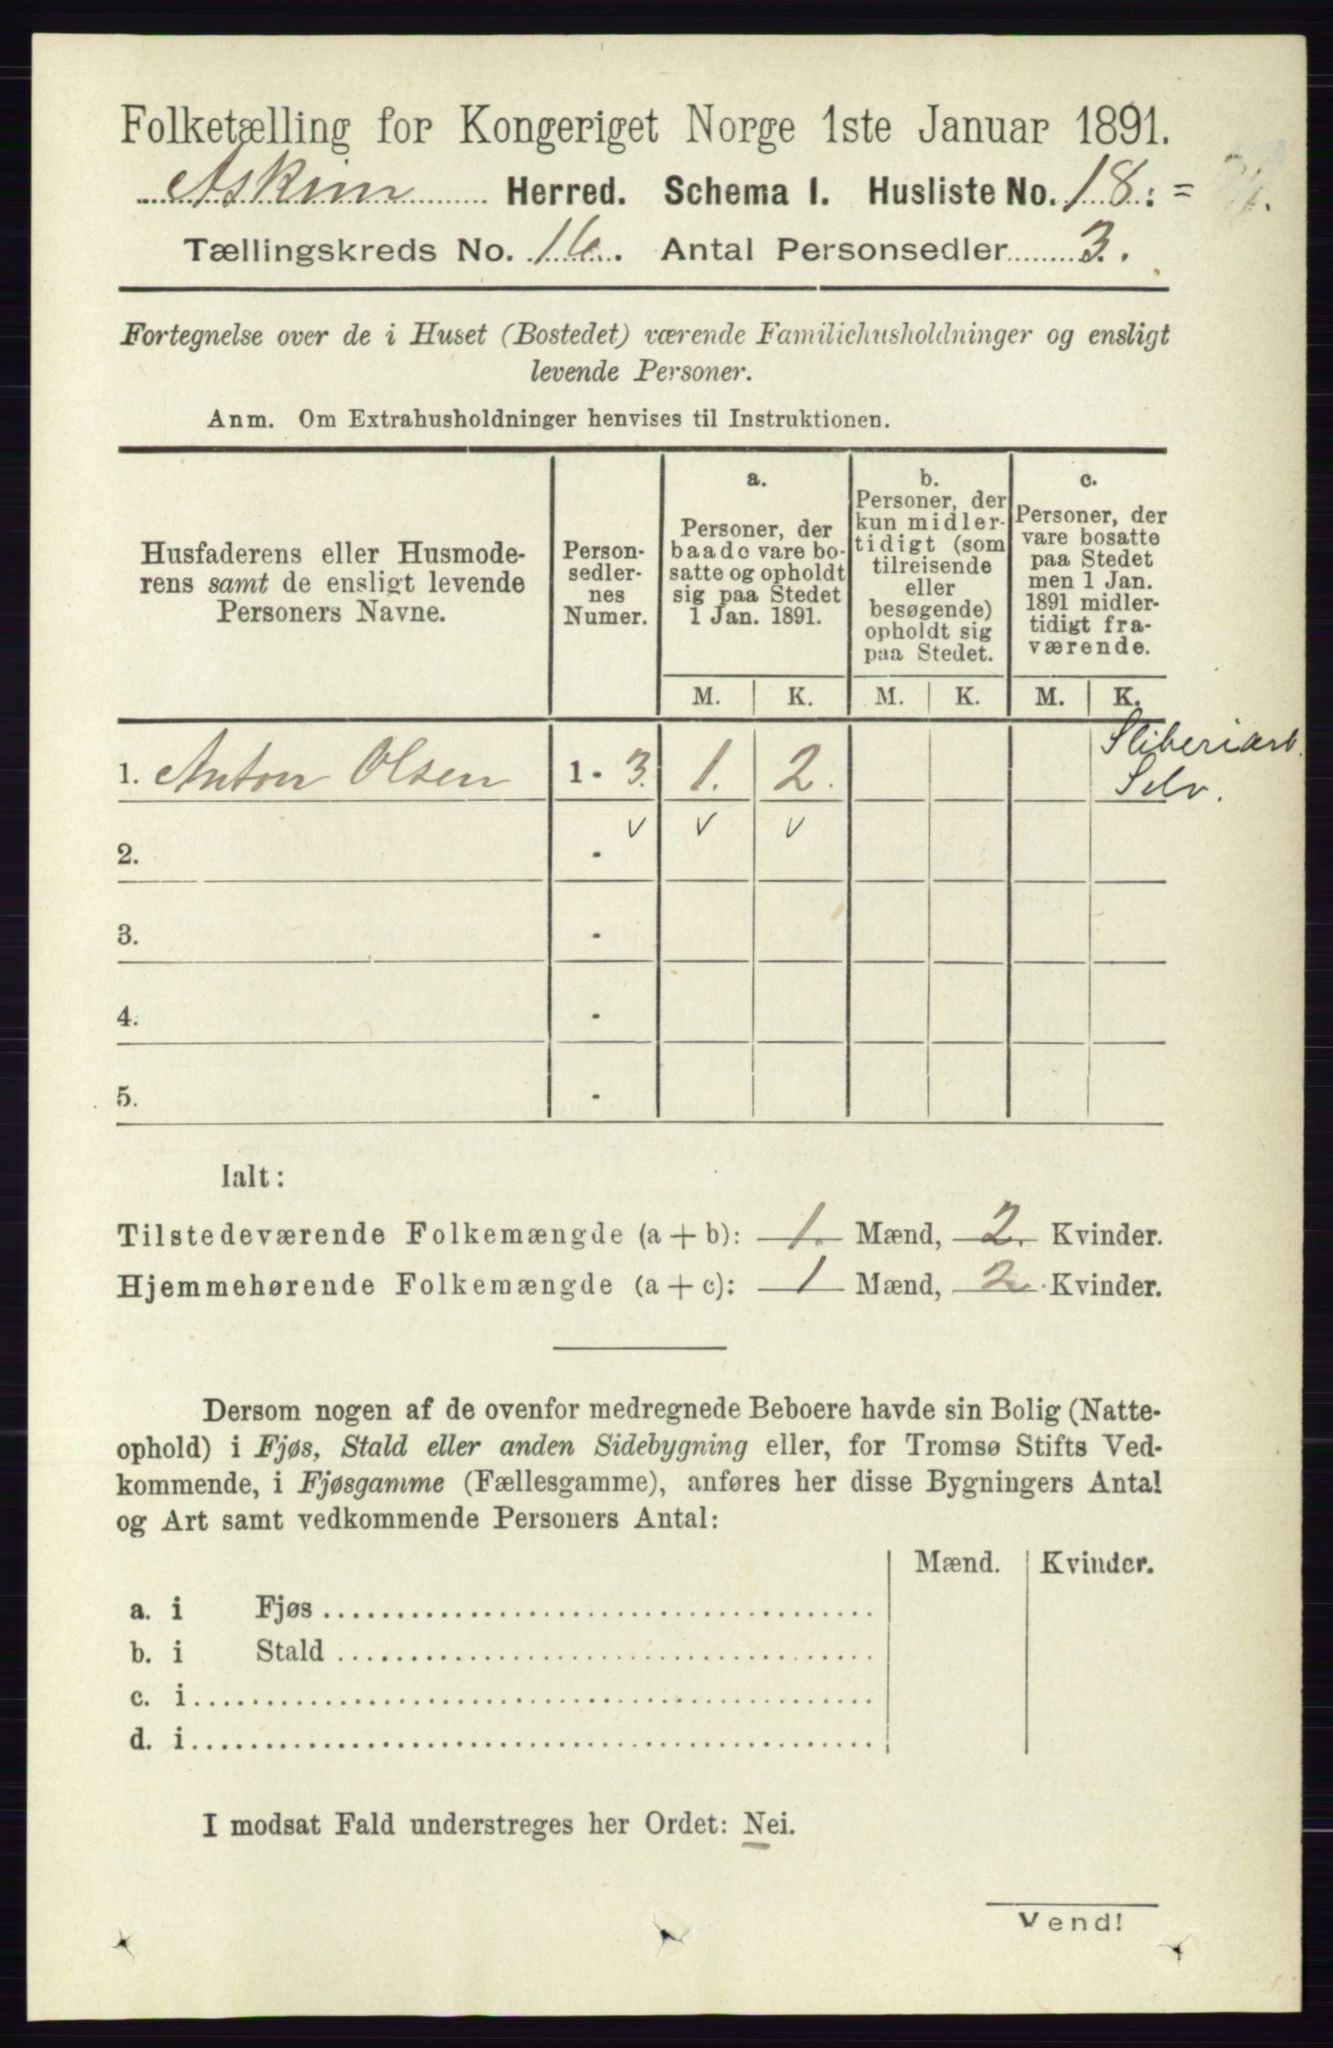 Folketælling for Kongeriget Norge 1ste Januar 1891.
Askim Herred. Schema I. Husliste No. 18. =
Tællingskreds No. 16. Antal Personsedler 3.
Fortegnelse over de i Huset (Bostedet) værende Familiehusholdninger og ensligt
levende Personer.
Anm. Om Extrahusholdninger henvises til Instruktionen.
Husfaderens eller Husmode-
rens samt de ensligt levende
Personers Navne.
Person-
sedler-
nes
Numer.
a.
Personer, der
baade vare bo-
satte og opholdt
sig paa Stedet
1 Jan. 1891.
b.
Personer, der
kun midler-
tidigt (som
tilreisende
eller
besøgende)
opholdt sig
paa Stedet.
c.
Personer, der
vare bosatte
paa Stedet
men 1 Jan.
1891 midler-
tidigt fra-
værende.
M. K. M. K. M. K.
Sliberiarb.
1. Anton Olsen 1 - 3. 1. 2. Selv.
v v v
2. -
3. -
4. -
5. -
Ialt:
Tilstedeværende Folkemængde (a + b): 1. Mænd, 2. Kvinder.
Hjemmehørende Folkemængde (a + c): 1 Mænd, 2. Kvinder.
Dersom nogen af de ovenfor medregnede Beboere havde sin Bolig (Natte-
ophold) i Fjøs, Stald eller anden Sidebygning eller, for Tromsø Stifts Ved-
kommende, i Fjøsgamme (Fællesgamme), anføres her disse Bygningers Antal
og Art samt vedkommende Personers Antal:
Mænd. Kvinder.
a. i Fjøs
b. i Stald
c. i
d. i
I modsat Fald understreges her Ordet: Nei.
Vend!